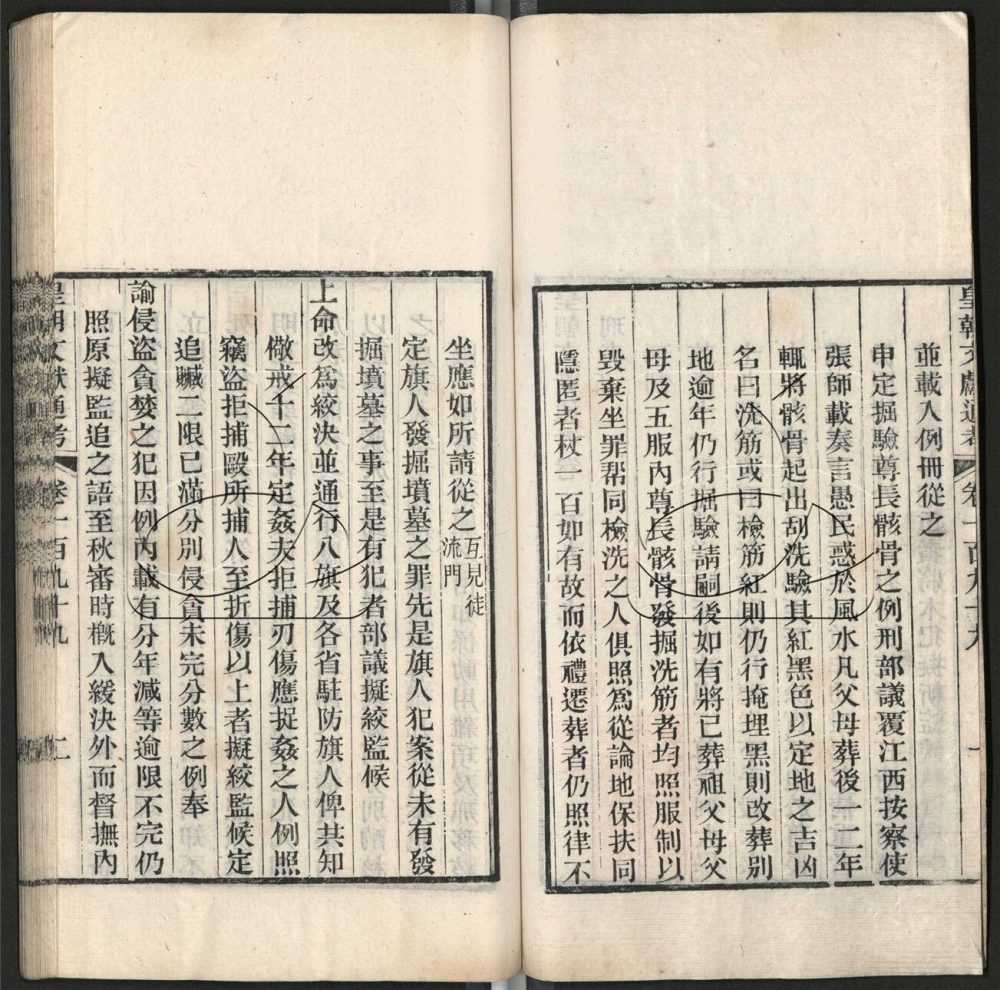 皇朝文獻通考 卷一百九十九 一
並載入例冊從之
申定掘驗尊長骸骨之例刑部議覆江西按察使
張師載奏言愚民惑於風水凡父母葬後一二年
輒將骸骨起出刮洗驗其紅黑色以定地之吉凶
名曰洗筋或曰檢筋紅則仍行掩埋黑則改葬別
地逾年仍行掘驗請嗣後如有將已葬祖父母父
母及五服內尊長骸骨發掘洗筋者均照服制以
毀棄坐罪帮同檢洗之人俱照為從論地保扶同
隱匿者杖一百如有故而依禮遷葬者仍照律不
坐應如所請從之互見徒流門
定旗人發掘墳墓之罪先是旗人犯案從未有發
掘墳墓之事至是有犯者部議擬絞監候
上命改為絞決並通行八旗及各省駐防旗人俾共知
儆戒十二年定姦夫拒捕刃傷應捉姦之人例照
竊盜拒捕毆所捕人至折傷以上者擬絞監候定
追贓二限已滿分別侵貪未完分數之例奉
諭侵盜貪婪之犯因例內載有分年減等逾限不完仍
照原擬監追之語至秋審時槪入緩決外而督撫內
皇朝文獻通考 卷一百九十九 二